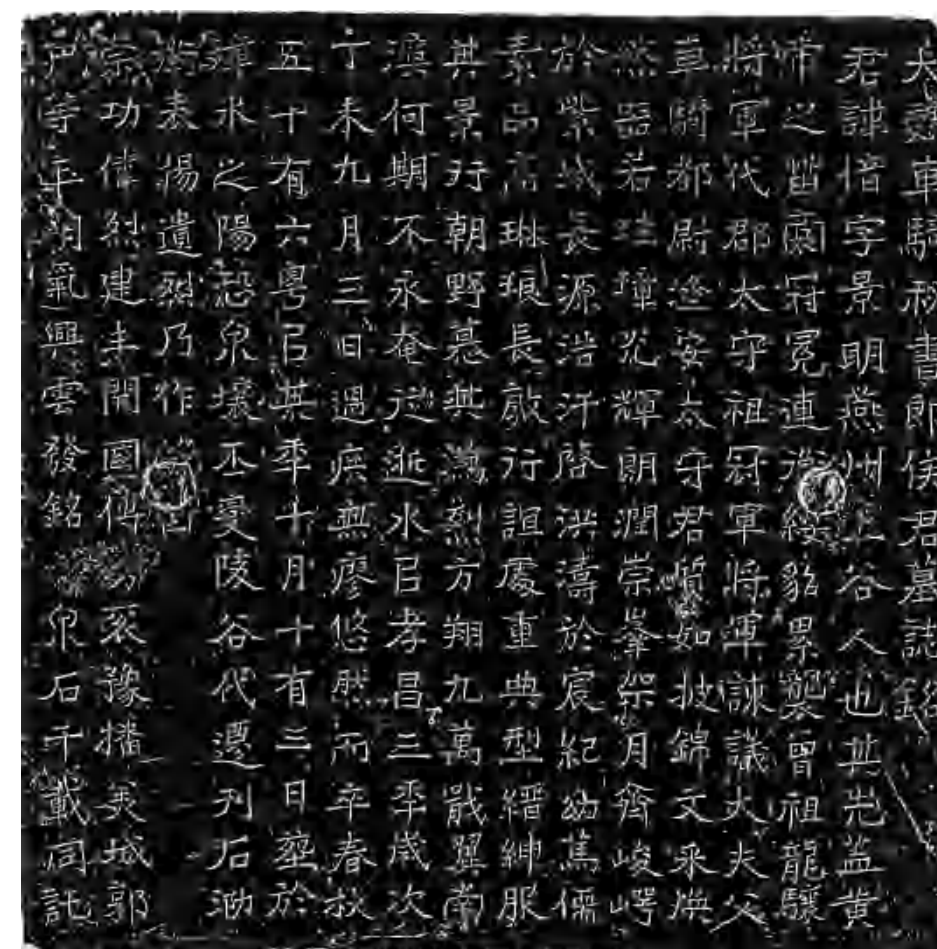 大魏車騎秘書郎侯君墓誌銘
君諱愔字景明燕州上谷人也其先蓋黄
帝之苗裔冠冕連衡綬貂累襲曾祖龍驤
將軍代郡太守祖冠軍將軍諫議大夫父
車騎都尉遼安太守君質如披錦文采煥
然器若珪璋光輝朗潤崇峯架月齊峻崿
於紫域長源浩汗啓洪濤於宸紀幼篤儒
素品高琳琅長敞行誼優重典型縉紳服
其景行朝野慕其鴻烈方翔九萬戢翼南
溟何期不永奄従逝水㠯孝昌三秊歲次
丁未九月三日遇疾無瘳悠然而卒春秋
五十有六粤㠯其秊十月十有二日塟於
水之陽恐泉壤丕變陵谷代遷刊石泐
表揚遺烈乃作曰
宗功偉烈建圭開國傳裘豫播美城郭
等平明氣興雲發銘泉石千載同託